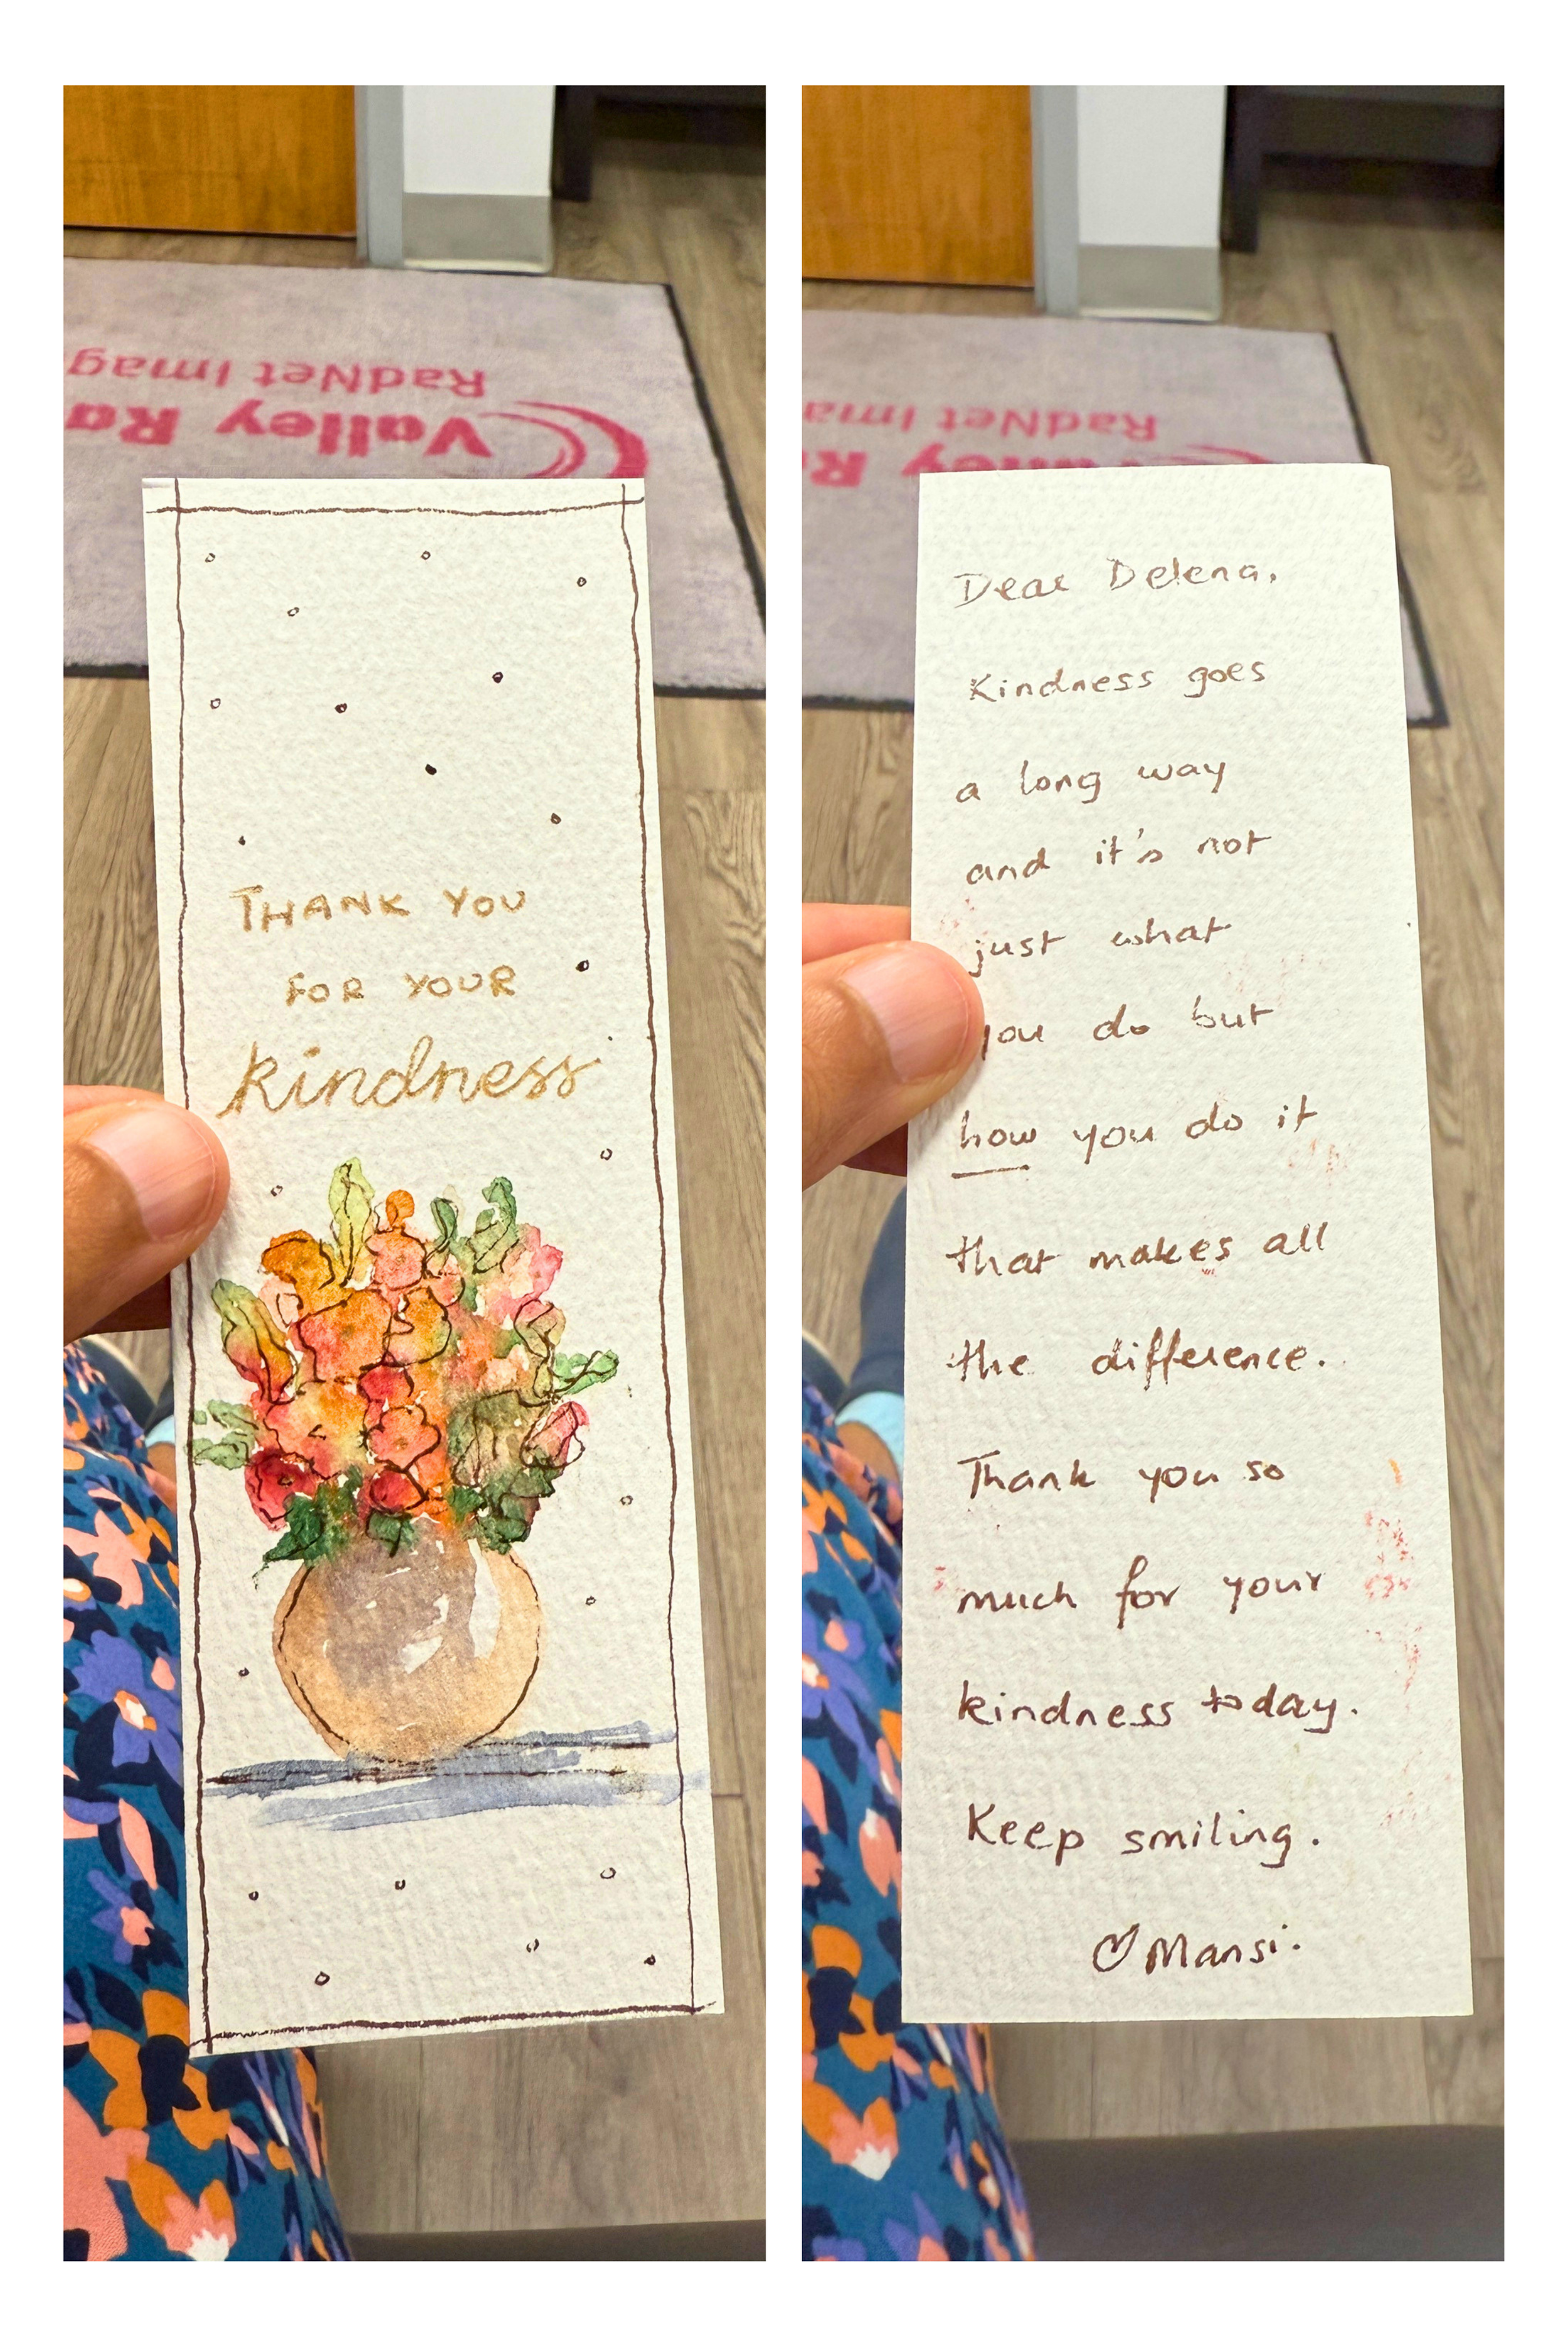 RadNet Imag
Valley Ra
THANK YOU
FOR YOUR
kindness
RadNet Ima
Valley R
Dear Delena,
Kindness goes
a long way
and it's not
just what
you do but
how you do it
that makes all
the difference.
Thank you so
much for your
kindness today.
Keep smiling.
♡ Mansi.